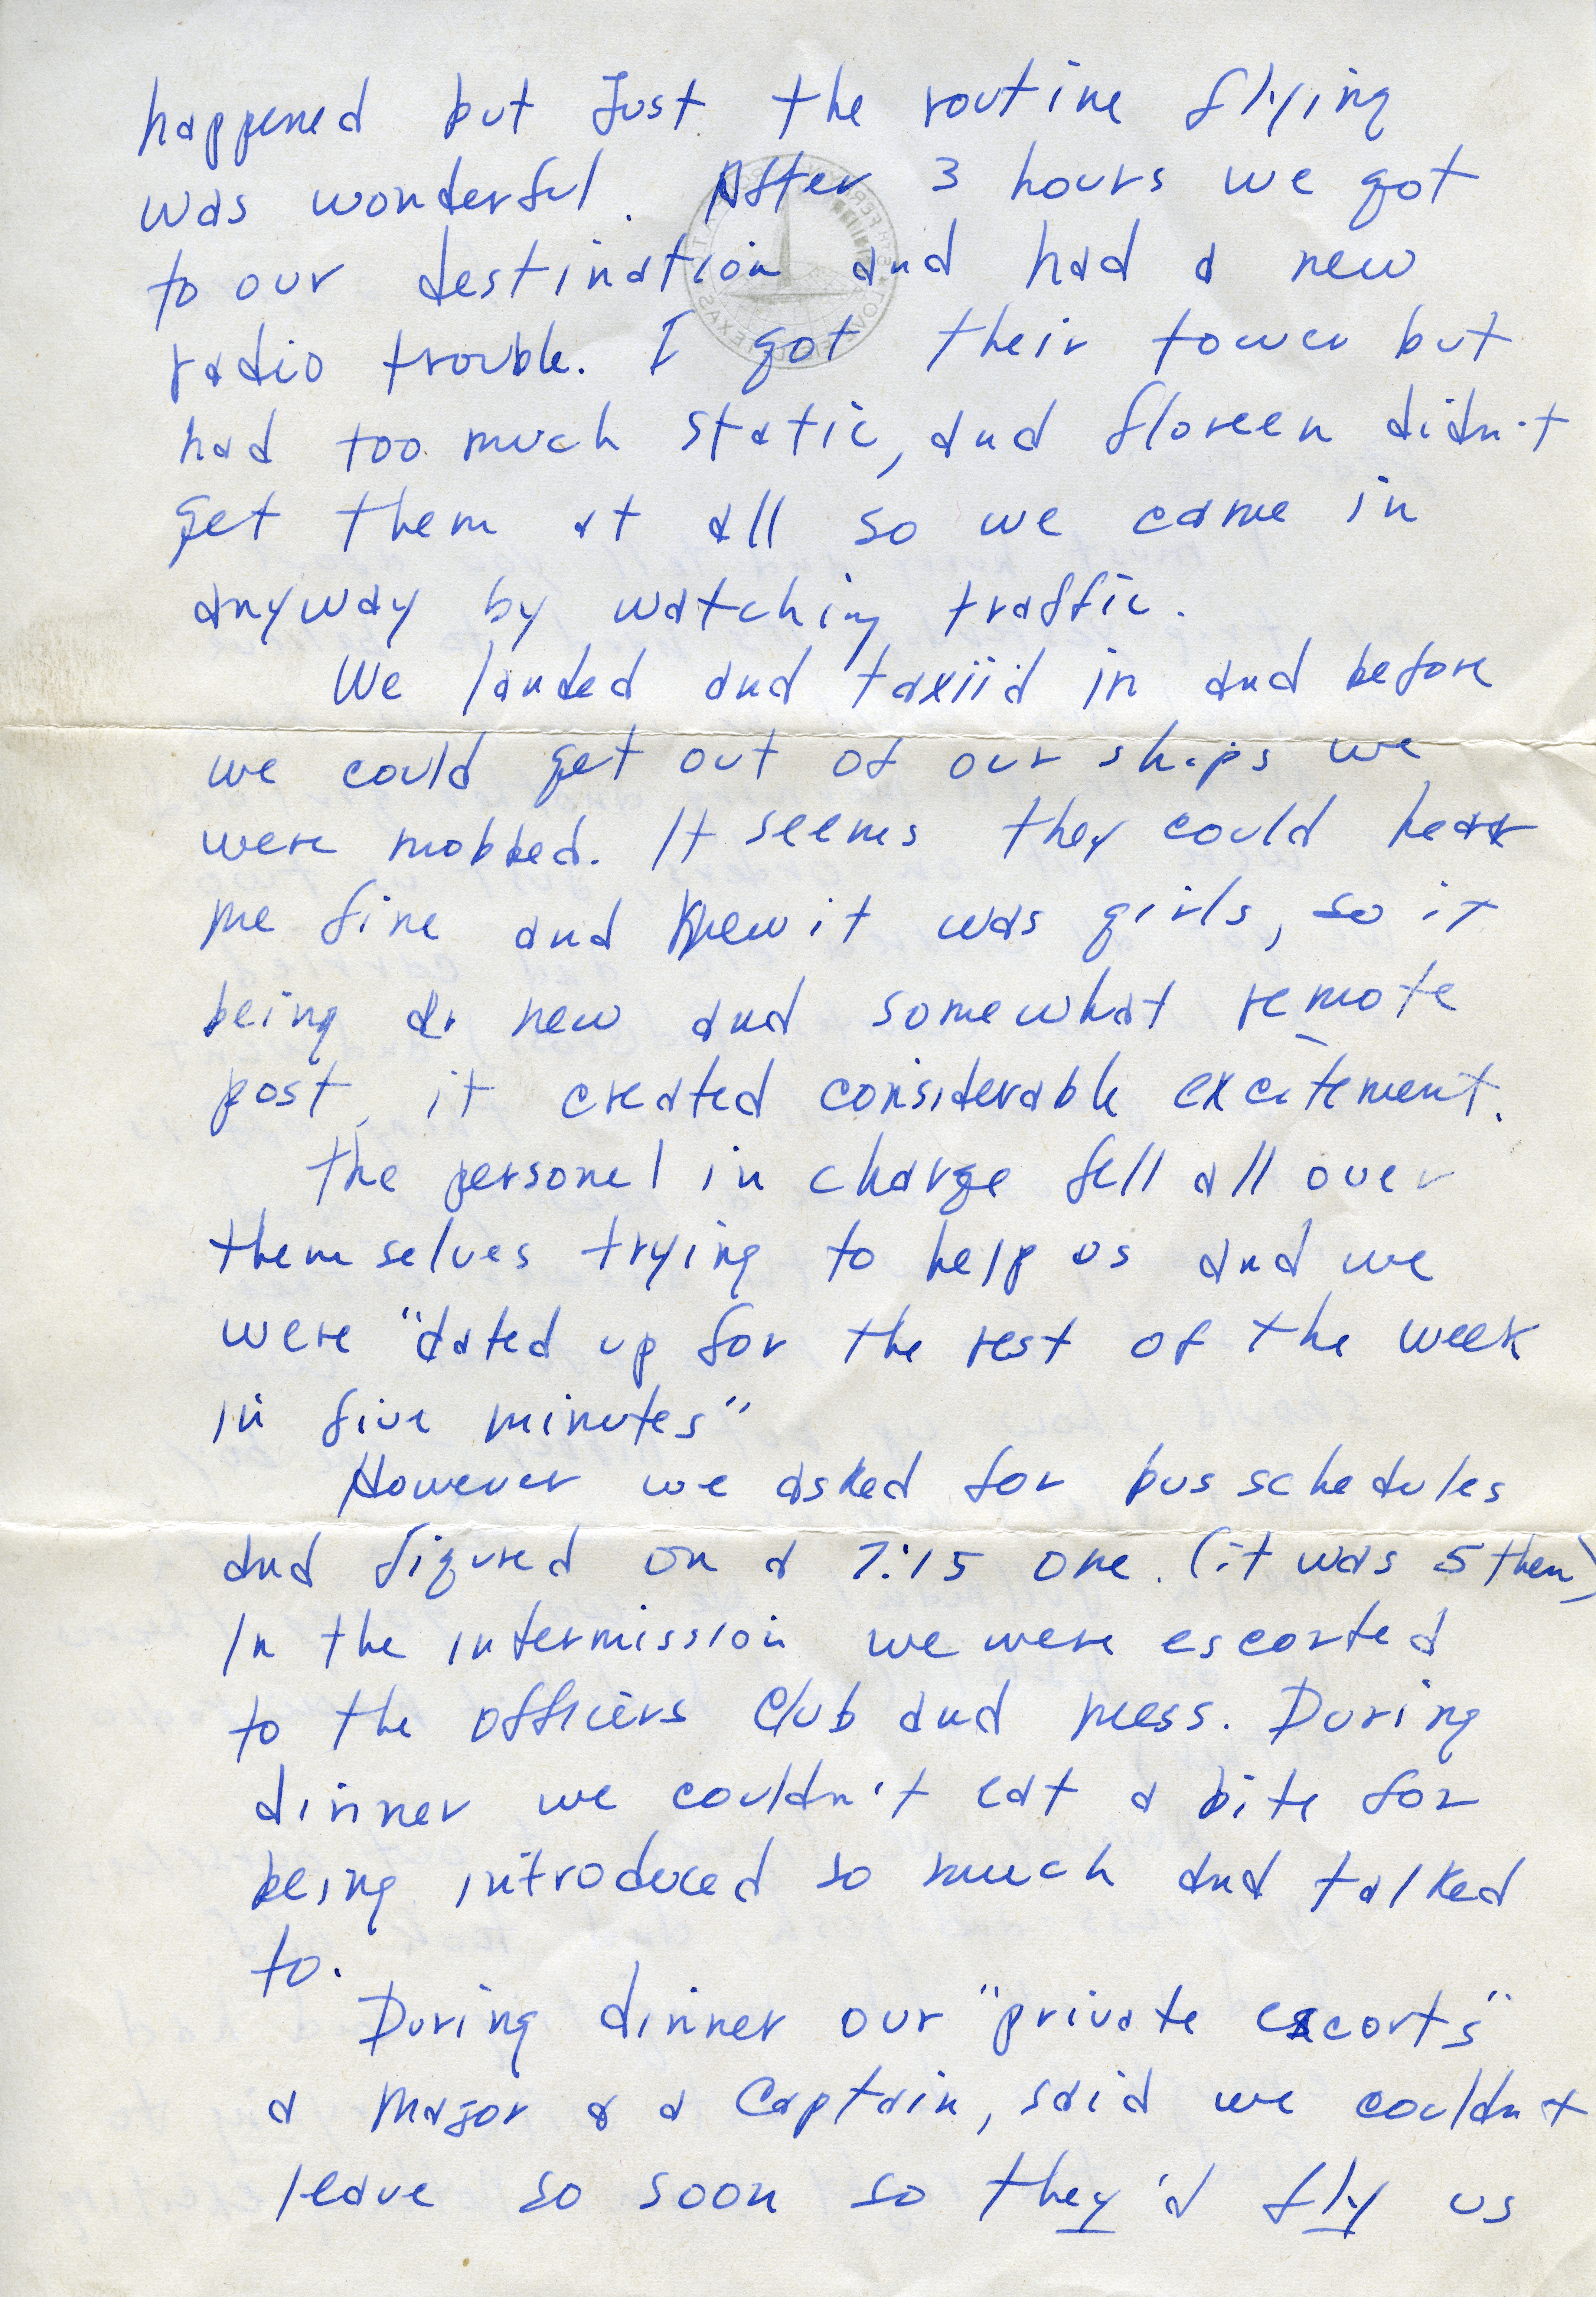 happened but Just the routine flying
was wonderful. After 3 hours we got
to our destination and had a new
radio trouble. I got their tower but
had too much static, and floreen didn't
get them at all so we came in
anyway by watching traffic.
We landed and taxiid in and before
we could get out of our ships we
were mobbed. It seems they could hear
me fine and knew it was girls, so it
being a new and somewhat remote
post, it created considerable excitement.
The personel in charge fell all over
themselves trying to help us and we
were "dated up for the rest of the week
in five minutes"
However we asked for bus schedules
and figured on a 7:15 one. (it was 5 then)
In the intermission we were escorted
to the officers Club and mess. During
dinner we couldn't eat a bite for
being introduced so much and talked
to.
During dinner our "private escorts"
a Major & a Captain, said we couldn't
leave so soon so they'd fly us